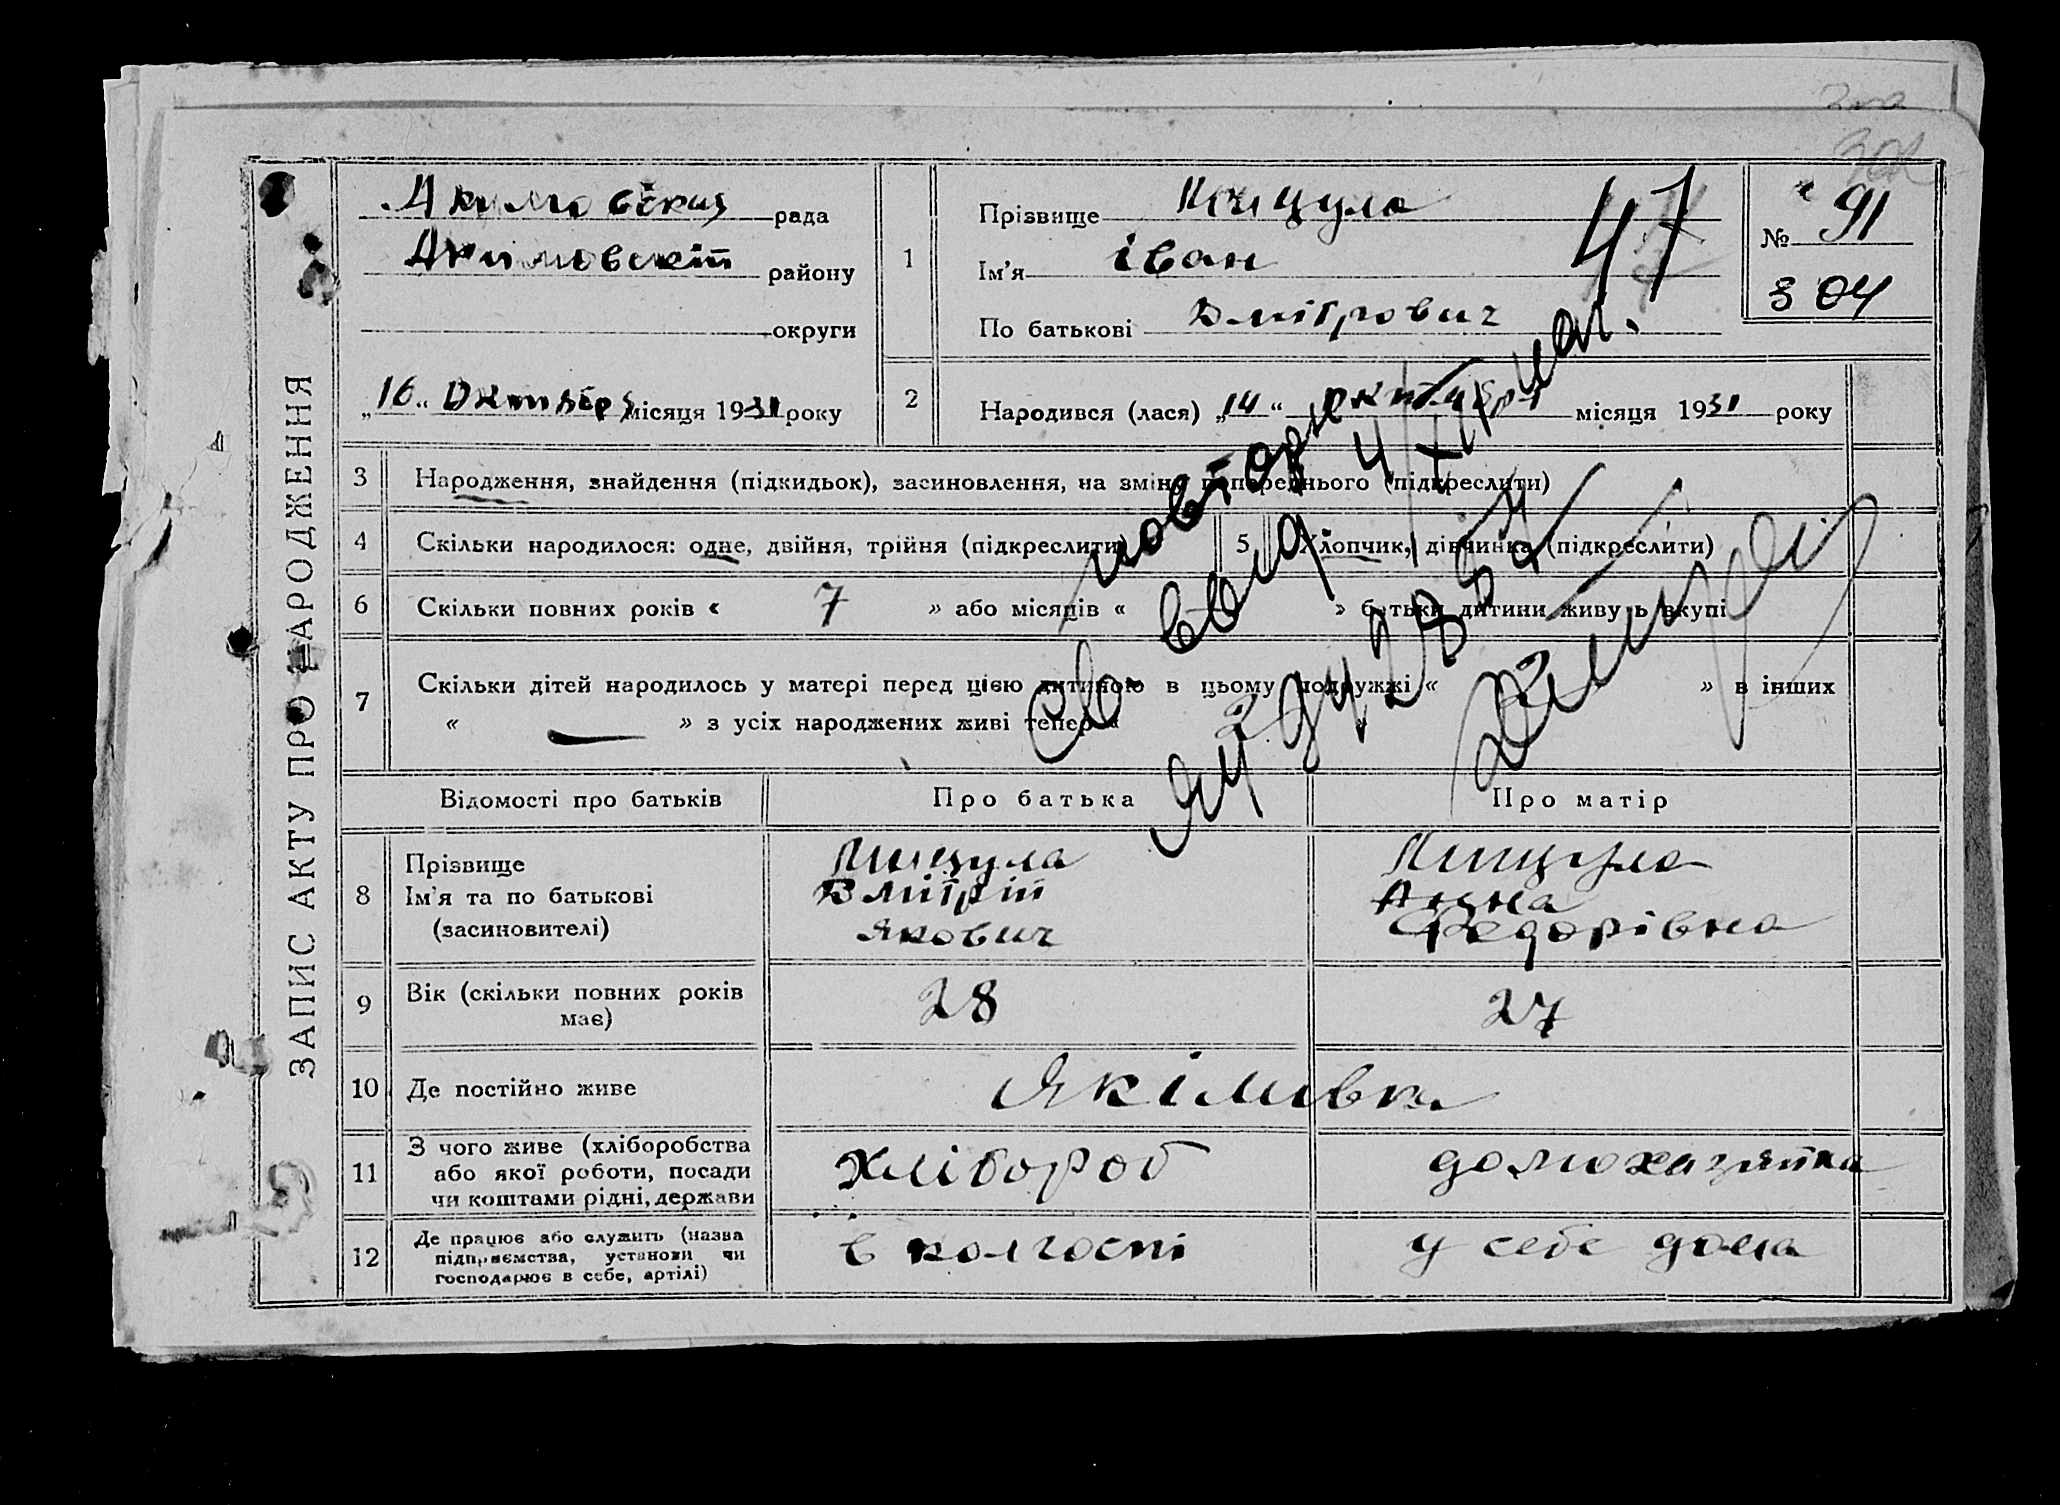 ЗАПИС АКТУ ПРО НАРОДЖЕННЯ
Акимовский рада
Акимовскій району
округи
„16“ Октябр місяця 1931 року
1
Прізвище Пищула
Ім'я Іван
По батькові Дмітрович
47
№ 91
304
2 Народився (лася) „14“ октября місяця 1931 року
3 Народження, знайдення (підкидьок), засиновлення, на зміну попереднього (підкреслити)
4 Скільки народилося: одне, двійня, трійня (підкреслити)
5 Хлопчик, дівчинка (підкреслити)
6 Скільки повних років « 7 » або місяців « » батьки дитини живуть вкупі
7 Скільки дітей народилось у матері перед цією дитиною в цьому подружжі « » в інших
« — » з усіх народжених живі тепер « 2 »
повторне
Відомості про батьків Про батька Про матір
8 Прізвище Пищула Пищула
Ім'я та по батькові Дмітрій Анна
(засиновителі) Якович Федорівна
9 Вік (скільки повних років має) 28 27
10 Де постійно живе Якімивка
11 З чого живе (хліборобства
або якої роботи, посади
чи коштами рідні, держави
хлібороб домохазяйка
12 Де працює або служить (назва
підприємства, установи чи
господарює в себе, артілі)
в колгоспі у себе дома